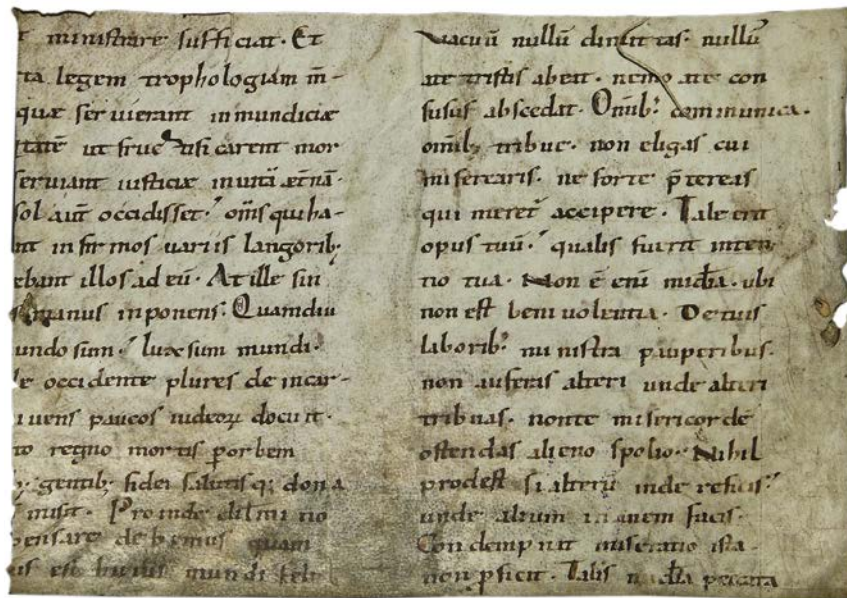 t ministrare sufficiat. Et
ta legem trophologiam m̄-
quae servierant inmundiciae
ut fruc tificarent mor
serviant iusticiae in vitā aet̄nā.
sol aut̄ occidisset. om̄s qui ha-
nt infirmos variis langorib;
ebant illos ad eū. At ille sin
s manus inponens. Quamdiu
undo sum. lux sum mundi.
le occidente plures de incar-
ivens paucos iudeoꝝ docuit.
to regno mortis
b; gentib; fidei salutisq; dona
misit. Proinde
pensare debemus quam
est huius mundi
Vacuū nullū dimittas. nullū
a te tristis abeat. nemo a te con
fusus abscedat. Om̄ib; communica.
om̄ib; tribue. non eligas cui
miserearis. ne forte p̄tereas
qui meret᷑ accipere. Tale erit
opus tuū. qualis fuerit inten
tio tua. Non ē enī mīa. ubi
non est benivolentia. De tuis
laborib; ministra pauperibus.
non auferas alteri unde alteri
tribuas. non te misericorde
ostendas alieno spolio. Nihil
prodest si alterū inde reficis.
unde alium inanem facis.
Condempnat miseratio ista.
non ꝓficit. Talis peccata